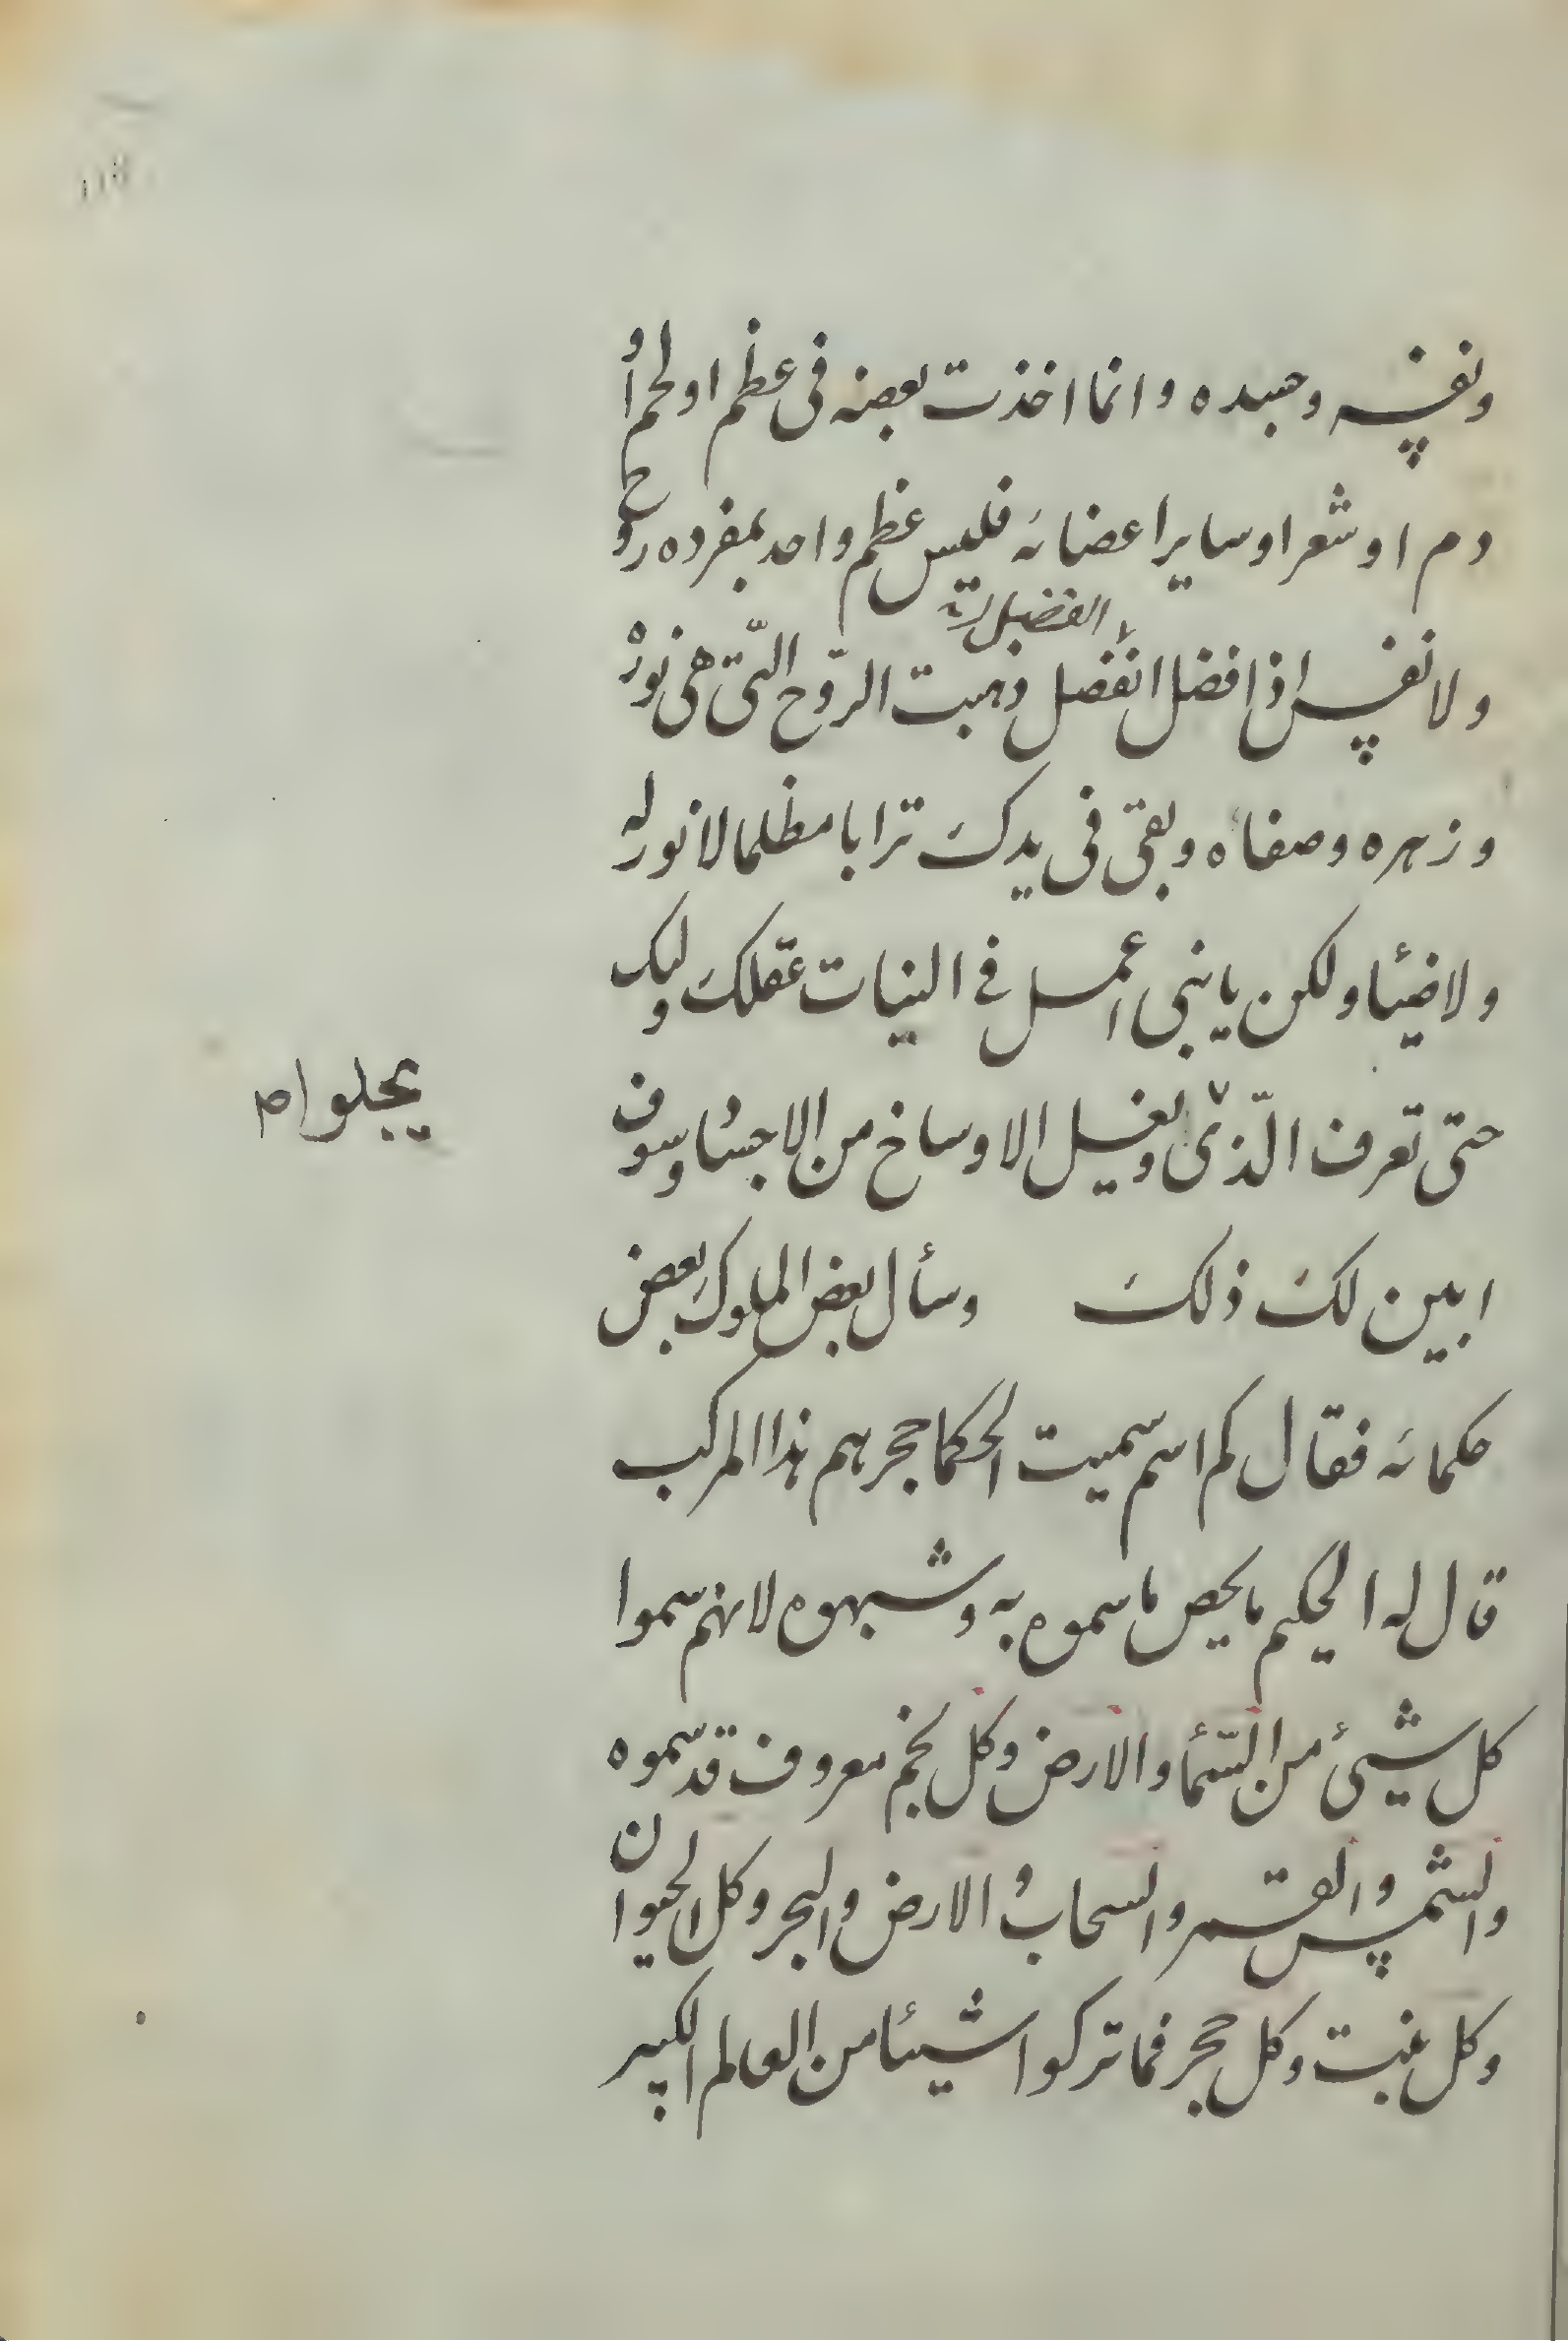 ونفسه وجسده وانما اخذت بعضه فى عظم او لحم أو
دم او شعر او سایر اعضائه فلیس عظم واحد بمفرده روح
ولا نفس اذا فضل انفصل ذهبت الروّح التّى هى نوره
وزهره وصفاه وبقى فى یدك ترابا مظلما لا نور له
ولا ضیئا ولكن یا بنى اعمل فى النیات عقلك ولبك
حتى تعرف الّذى و یغسل الاوساخ من الاجسا وسوف
یجلوا
ابین لك ذلك وسأل بعض الملوك بعض
حكمائه فقال كم اسم سمیت الحكما حجرهم هذا المركب
قال له الحكیم ما یحص ما سموه به وشبهوه لانهم سموا
كل شیئ من السّمأ والارض وكل نجم معروف قد سموه
والشمس والقمر والسحاب و الارض والبحر وكل الحیوان
وكل نبت وكل حجر فما تركوا شیئا من العالم الكبیر